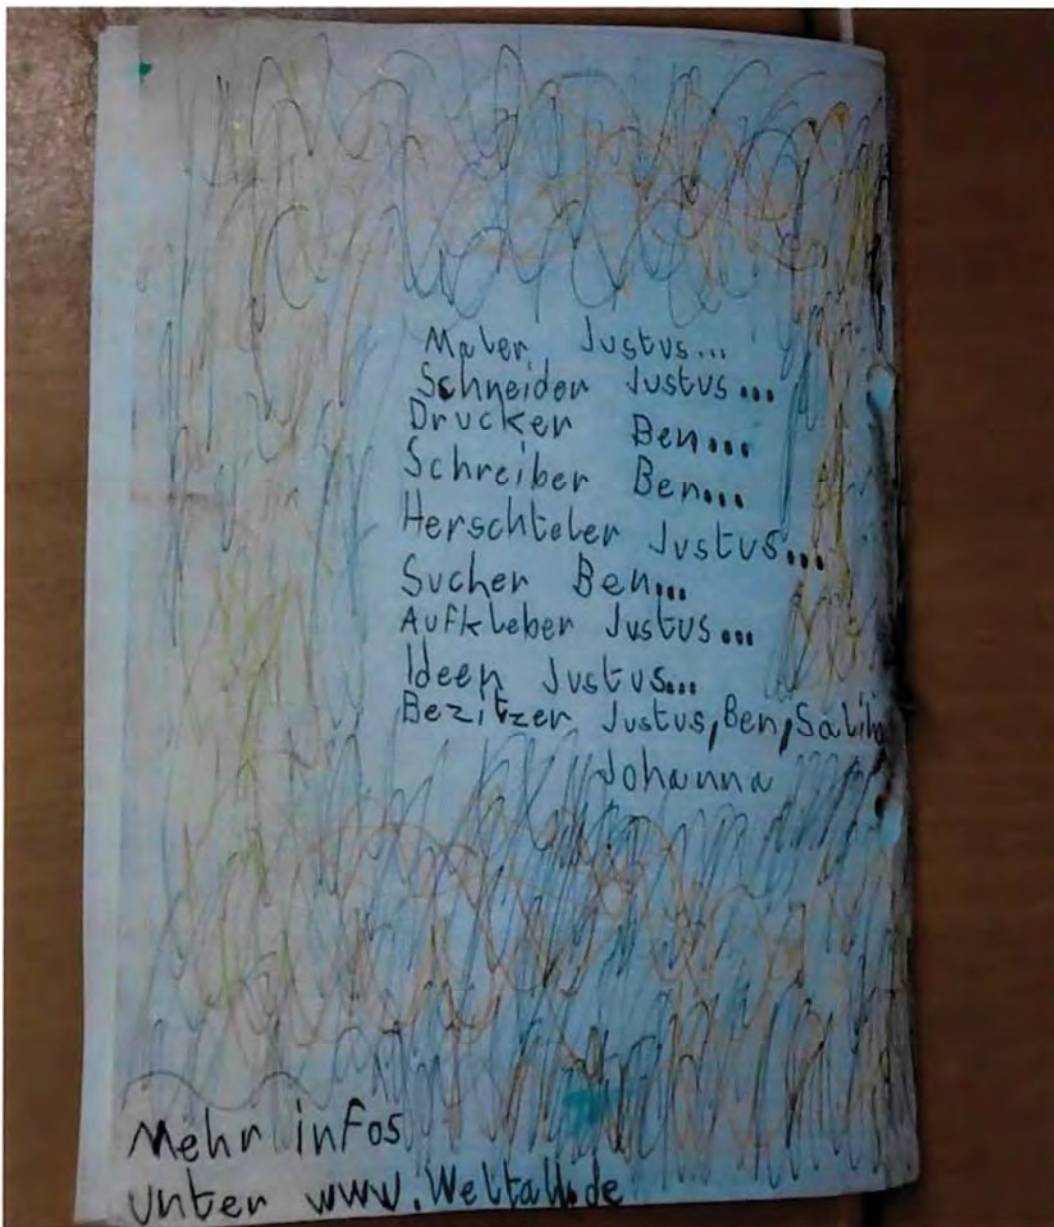 Maler Justus...
Schneider Justus...
Drucker Ben...
Schreiber Ben...
Herschteler Justus...
Sucher Ben...
Aufkleber Justus...
Ideen Justus...
Bezitzer Justus, Ben, Salih
Johanna
Mehr infos
unter www.Weltall.de